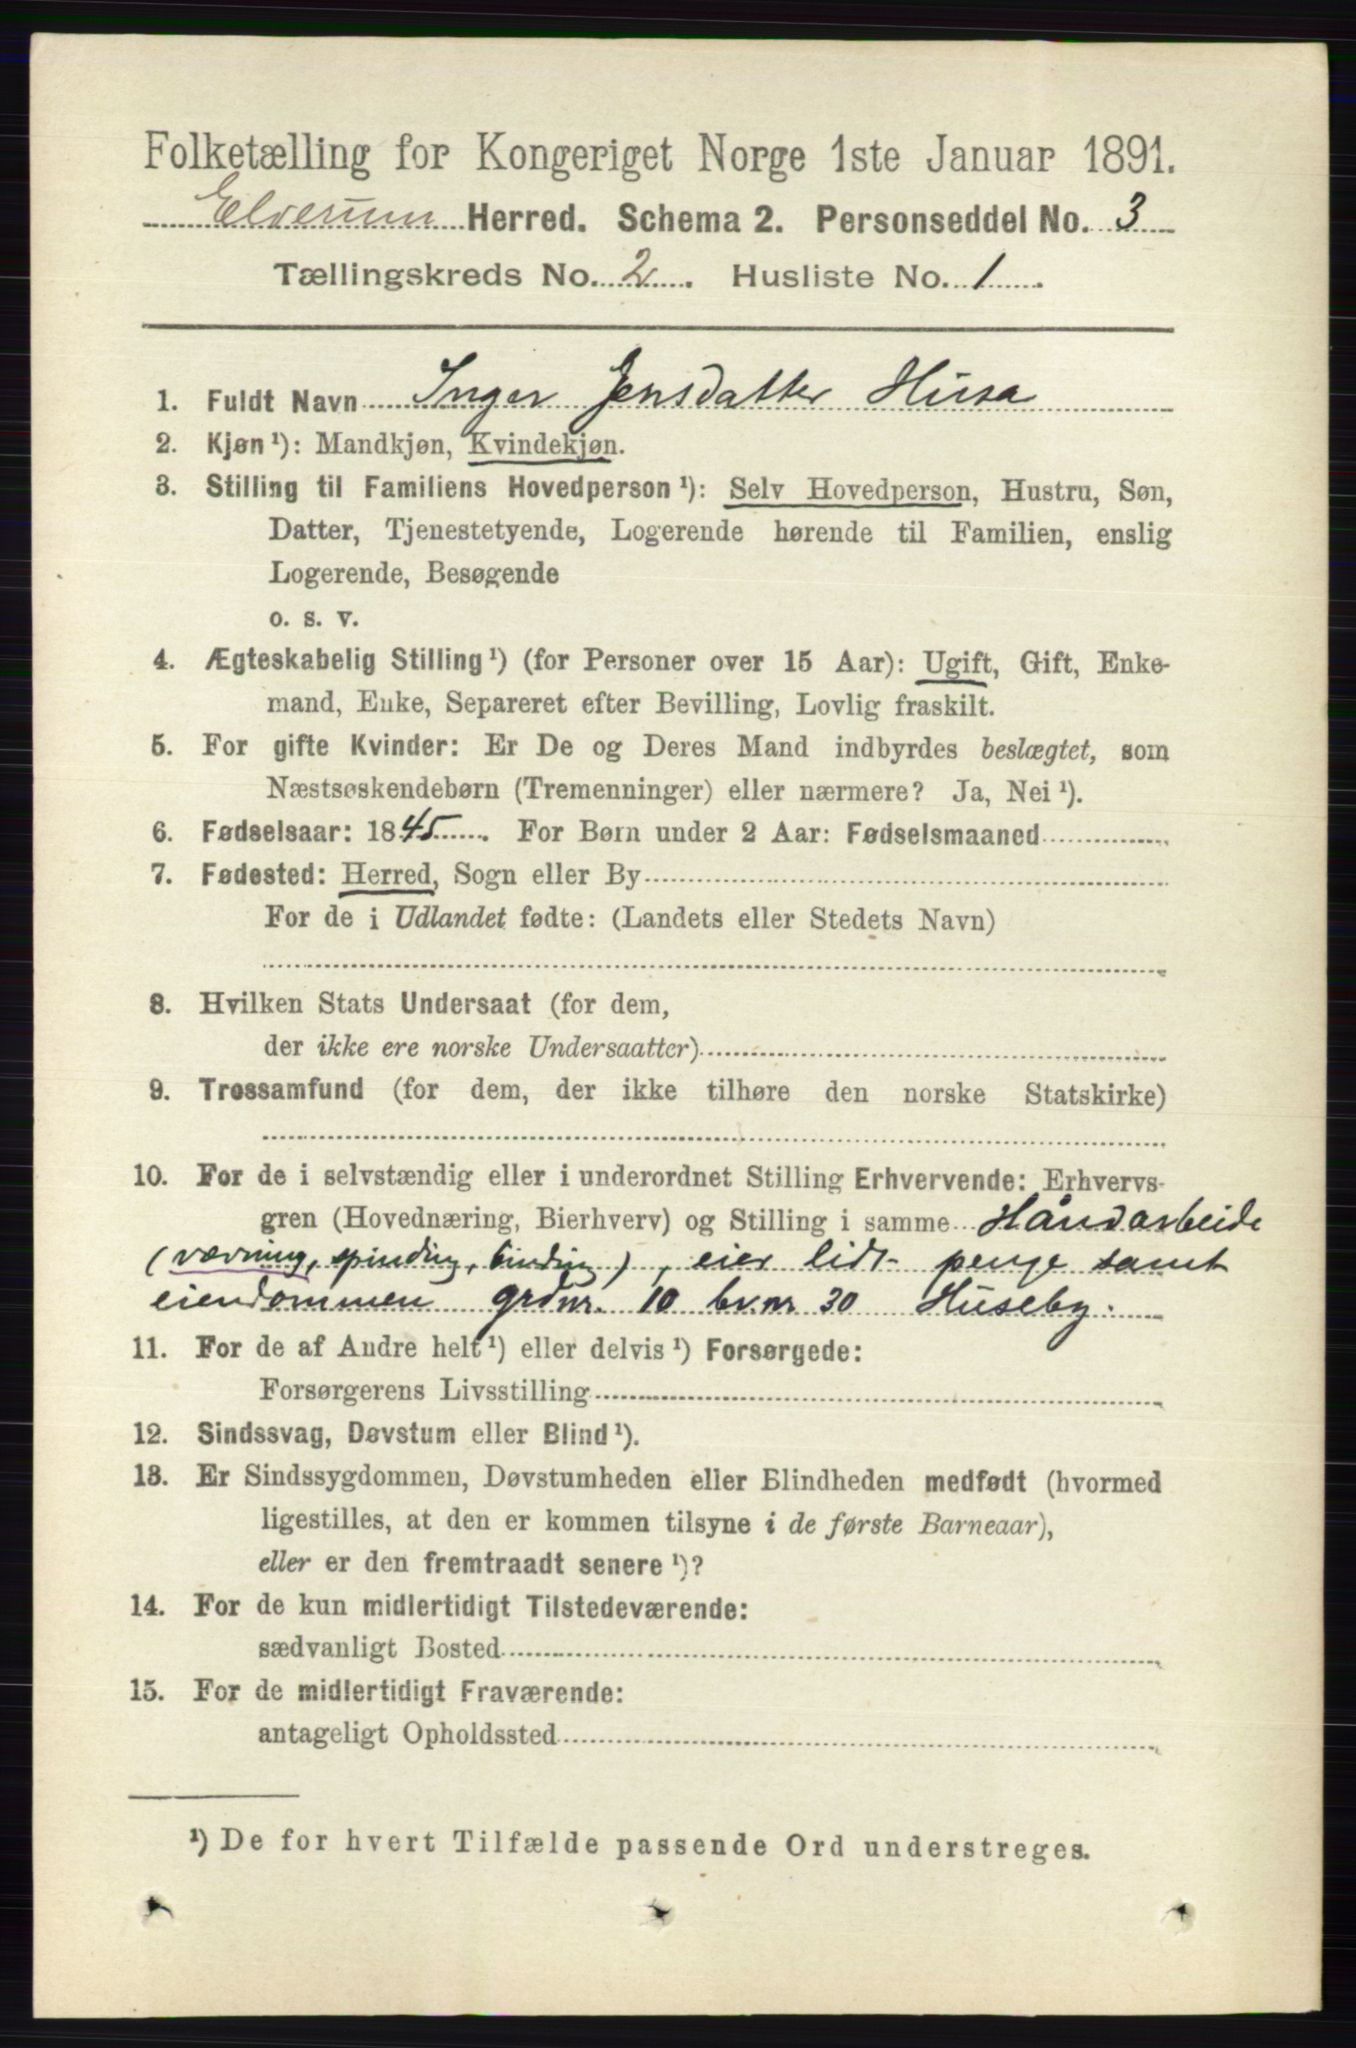 Folketælling for Kongeriget Norge 1ste Januar 1891.
Elverum Herred. Schema 2. Personseddel No. 3
Tællingskreds No. 2. Husliste No. 1.
1. Fuldt Navn Inger Jensdatter Husa
2. Kjøn ¹): Mandkjøn, Kvindekjøn.
3. Stilling til Familiens Hovedperson ¹): Selv Hovedperson, Hustru, Søn,
Datter, Tjenestetyende, Logerende hørende til Familien, enslig
Logerende, Besøgende
o. s. v.
4. Ægteskabelig Stilling ¹) (for Personer over 15 Aar): Ugift, Gift, Enke-
mand, Enke, Separeret efter Bevilling, Lovlig fraskilt.
5. For gifte Kvinder: Er De og Deres Mand indbyrdes beslægtet, som
Næstsøskendebørn (Tremenninger) eller nærmere? Ja, Nei ¹).
6. Fødselsaar: 1845. For Børn under 2 Aar: Fødselsmaaned
7. Fødested: Herred, Sogn eller By
For de i Udlandet fødte: (Landets eller Stedets Navn)
8. Hvilken Stats Undersaat (for dem,
der ikke ere norske Undersaatter)
9. Trossamfund (for dem, der ikke tilhøre den norske Statskirke)
10. For de i selvstændig eller i underordnet Stilling Erhvervende: Erhvervs-
gren (Hovednæring, Bierhverv) og Stilling i samme Håndarbeide
(vævning, spinding, binding), eier lidt penge samt
eiendommen grdnr. 10 br.nr 30 Huseby.
11. For de af Andre helt ¹) eller delvis ¹) Forsørgede:
Forsørgerens Livsstilling
12. Sindssvag, Døvstum eller Blind ¹).
13. Er Sindssygdommen, Døvstumheden eller Blindheden medfødt (hvormed
ligestilles, at den er kommen tilsyne i de første Barneaar),
eller er den fremtraadt senere ¹)?
14. For de kun midlertidigt Tilstedeværende:
sædvanligt Bosted
15. For de midlertidigt Fraværende:
antageligt Opholdssted
¹) De for hvert Tilfælde passende Ord understreges.